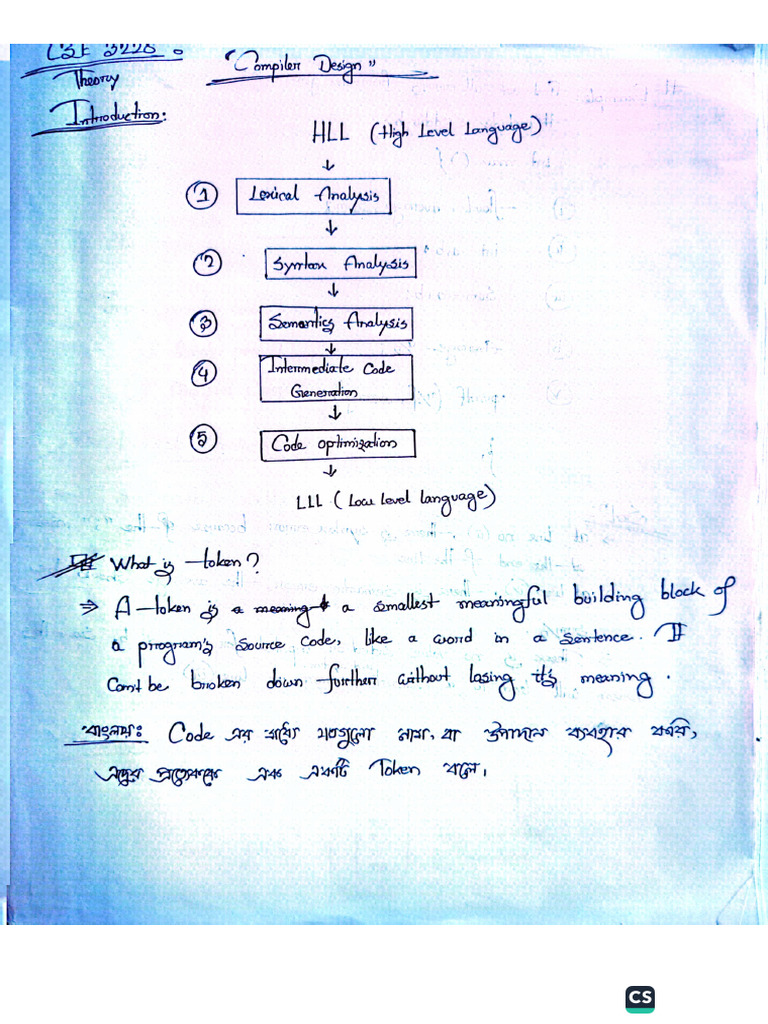 CSE 3220
Theory
"Compiler Design"
Introduction:
HLL (High Level Language)
↓
① Lexical Analysis
↓
② Syntax Analysis
↓
③ Semantics Analysis
↓
④ Intermediate Code
Generation
↓
⑤ Code optimization
↓
LLL (Low level language)
What is token?
⇒ A token is a meaning a smallest meaningful building block of
a program's source code, like a word in a sentence. It
can't be broken down further without losing it's meaning.
বাংলায়ঃ Code এর মধ্যে যতগুলো নাম, বা উপাদান ব্যবহার করি,
এদের প্রত্যেককে এক একটি Token বলে।
CS